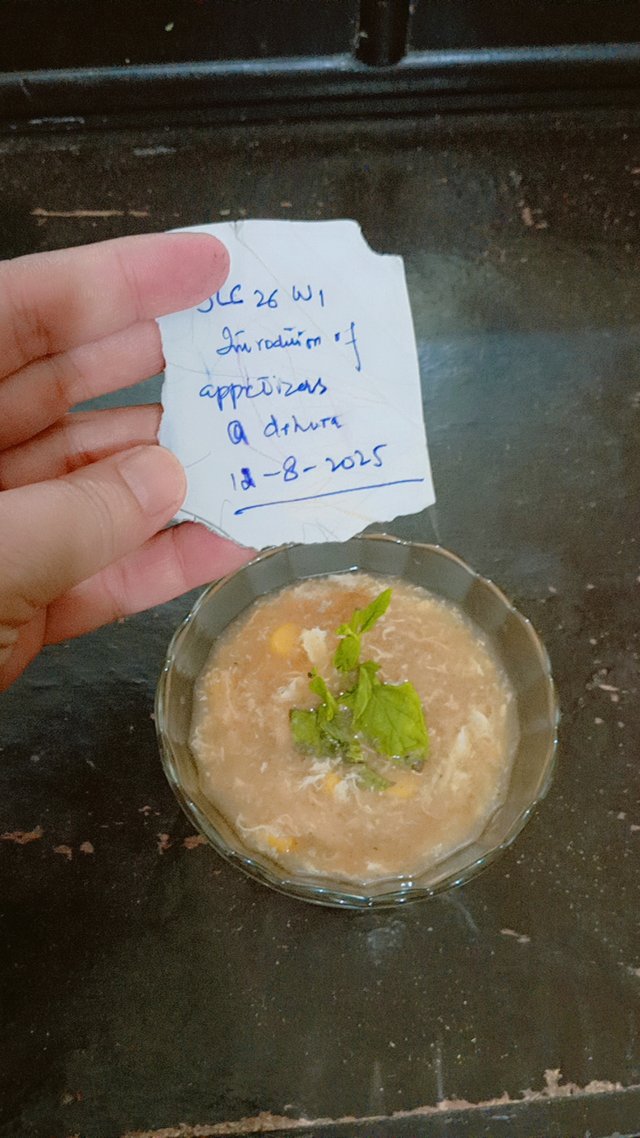 SLC 26 W1
Introduction of
appetizers
@ dehura
12-8-2025